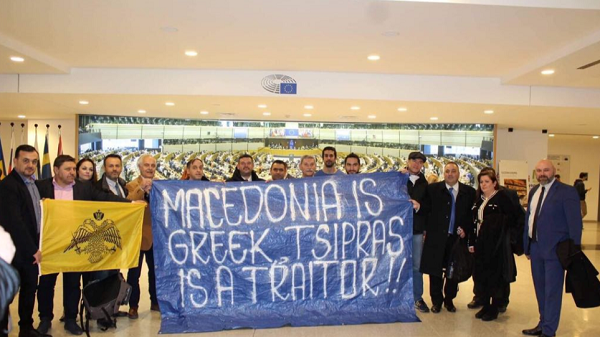 MACEDONIA IS
GREEK TSIPRAS
IS A TRAITOR.!!